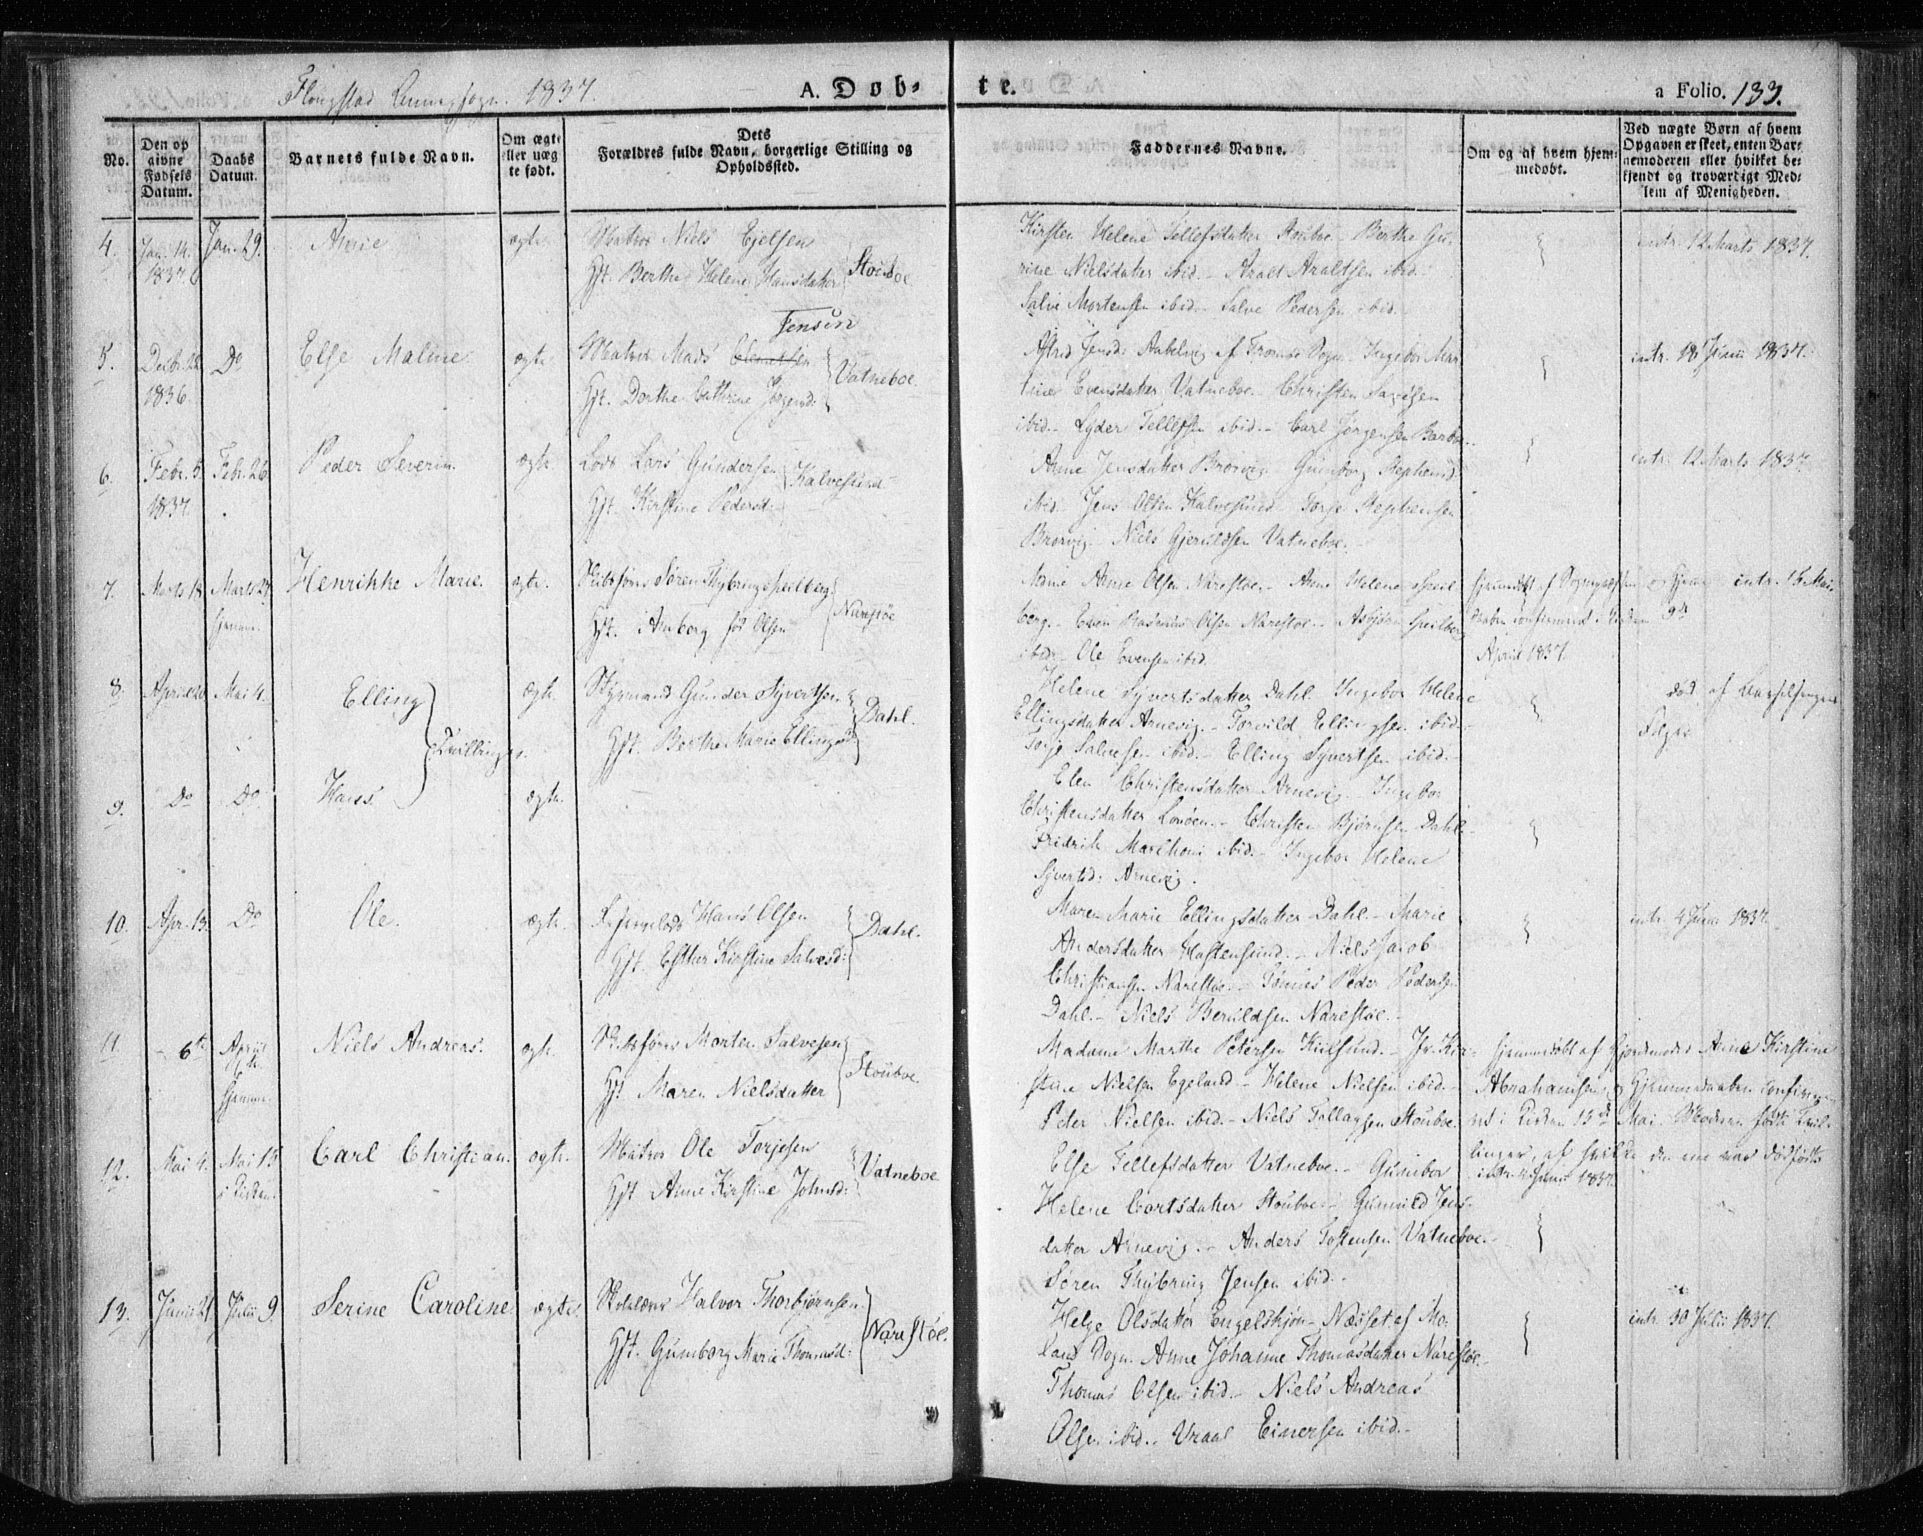 Flougstad Annexsogn. 1837.
A. Døb-
te.
a Folio. 133.
No.
Den op
givne
Fødsels
Datum.
Daabs
Datum.
Barnets fulde Navn.
Om ægte
eller uæg
te født.
Dets
Forældres fulde Navn, borgerlige Stilling og
Opholdssted.
Faddernes Navne.
Om og af hvem hjem-
medøbt.
Ved uægte Børn af hvem
Opgaven er skeet, enten Bar-
nemoderen eller hvilket be-
kjendt og troværdigt Med-
lem af Menigheden.
4.
Jan. 14.
1837.
Jan. 29.
Anne
ægte
Matros Niels Ejelsen
Gft. Berthe Helene Hansdatter
Stouboe
Kirsten Helene Tellefsdatter Berthe Gu-
rine Nielsdatter ibid. - Aralt Araltsen ibid.
Salve Mortensen ibid. Salve Pedersen ibid.
intr. 12 Marts 1837.
5.
Decbr. 22
1836.
Do
Else Maline
ægte
Jensen
Matros Mads
Gft. Dorthe Cathrine Jørgensd:
Vatneboe.
Astrid Jensd: Aahelvig af Tromøe Sogn. Ingebor Mar
tine Evensdatter Vatneboe. Christen
ibid. - Lyder Tellefsen ibid. - Carl Jørgensen
intr. 18 Juni 1837.
6.
Febr. 5.
1837.
Febr. 26
Peder Severin.
ægte
Lods Lars Gundersen
Gft. Kirstine Pedersd:
Kalvesund
Anne Jensdatter Brorvig. Gunborg Stephensd:
ibid. Jens Olsen Kalvesund Torje Stephensen
Brorvig. Niels Gjeruldsen Vatneboe.
intr. 12 Marts 1837
7.
Marts 18
Marts 27
hjemme.
Henrikke Marie.
ægte.
Skibsfører Søren Thybring Speilberg
Gft. Amborg fød Olsen
Narestøe
Anne Olsen Narestøe. - Anne Helene Speil
berg. - Even Rasmus Olsen Narestøe. - Asbjørn Speilberg
ibid. Ole Evensen ibid.
hjemmedøbt af Sognepræsten og hjemme
daaben confirmeret i Kirken 9de
April 1837.
intr. 15 Mai
8.
April 20
Mai 4.
Elling
Tvillinger.
ægte.
Styrmand Gunder Syvertsen
Gft. Berthe Marie Ellingsd:
Dahl.
Helene Syvertsdatter Dahl. Ingebor Helene
Ellingsdatter Arnevig. - Torvild Ellingsen ibid.
Torje Salvesen ibid. - Elling Syvertsen ibid. -
død af Barselsengens
Følger
9.
Do
Do
Hans
ægte.
Elen Christensdatter Arnevig. - Ingebor
Christensdatter Lonøen. - Christen Bjørnsen Dahl.
Fridrik Marthoni ibid. - Ingebor Helene
Syvertsd: Arnevig.
10.
Apr. 13.
Do
Ole.
ægte.
Hans Olsen
Gft. Esther Kirstine Salvesd:
Dahl.
Maren Marie Ellingsdatter Dahl. - Marie
Andersdatter Hastensund. - Niels Jacob
Christiansen Narestøe. - Tønnes Peder Pedersen
Dahl. - Niels Beruldsen Narestøe. -
intr. 4 Juni 1837.
11
6te
April
hjemme.
Niels Andreas.
ægte.
Skibsfører Morten Salvesen
Gft Maren Nielsdatter
Stouboe.
Madame Marthe Petersen Kulsund. - Jfr. Kir-
stine Nielsen Egeland - Helene Nielsen ibid. -
Peter Nielsen ibid. - Niels Tallagsen Stouboe.
hjemmedøbt af Gjordemoder Anne Kirstine
Abrahamsen og Hjemmedaaben confirme-
ret i Kirken 15de Mai. Moderen fødte Tvil-
linger, af hvilke den ene var dødfødt
intr. 4 Juni 1837.
12.
Mai 4.
Mai 15
i Kirken.
Carl Christian.
ægte.
Matros Ole Torjesen
Gft Anne Kirstine Johnsd:
Vatneboe
Else Tellefsdatter Vatneboe. - Gunebor
Helene Cortsdatter Stouboe. - Gunuld Jens-
datter Arnevig. - Anders Tostensen Vatneboe. -
Søren Thybring Jensen ibid. -
13.
Junii 21.
Julii 9
Serine Caroline
ægte
Skolelærer Halvor Thorbjørnsen
Gft. Gunborg Marie Thomasd:
Narestøe.
Helge Olsdatter Engelskjøn - Næsset af Mo-
lands Sogn. Anne Johanne Thomasdatter Narestøe. -
Thomas Olsen ibid. - Niels Andreas
Olsen ibid. - Vraal Einersen ibid. -
intr. 30 Julii 1837.